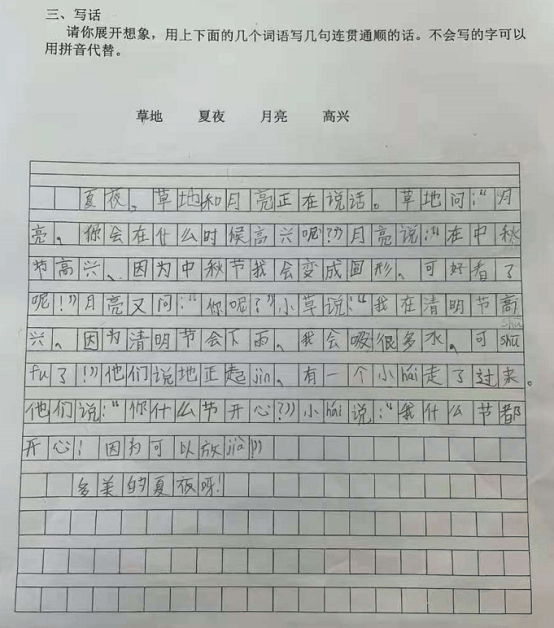 三、写话
请你展开想象，用上下面的几个词语写几句连贯通顺的话。不会写的字可以
用拼音代替。
草地 夏夜 月亮 高兴
夏夜、草地和月亮正在说话。草地问：“月
亮、你会在什么时候高兴呢？”月亮说：“在中秋
节高兴、因为中秋节我会变成圆形、可好看了
呢！”月亮又问：“你呢？”小草说：“我在清明节高
兴、因为清明节会下雨、我会吸很多水、可shū
fu了！”他们说地正起jìn、有一个小hái走了过来。
他们说：“你什么节开心？”小hái说：“我什么节都
开心！因为可以放jià！”
多美的夏夜呀！